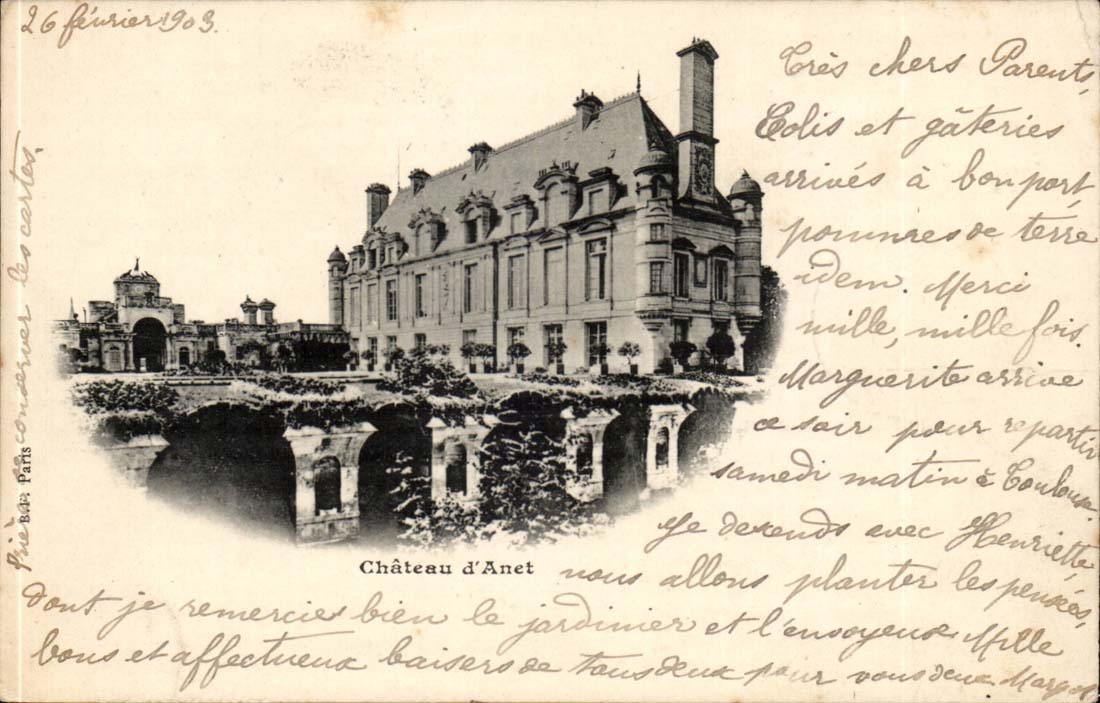 26 février 1903.
Très chers Parents,
Colis et gâteries
arrivés à bon port,
pommes de terre
idem. Merci
mille, mille fois.
Marguerite arrive
ce soir pour repartir
samedi matin à Toulouse.
Je descends avec Henriette,
nous allons planter les pensées,
dont je remercie bien le jardinier et l'envoyeuse Mille
bons et affectueux baisers de tous deux pour vous deux Margot
Château d'Anet
B.F. Paris
Prière conserver les cartes.